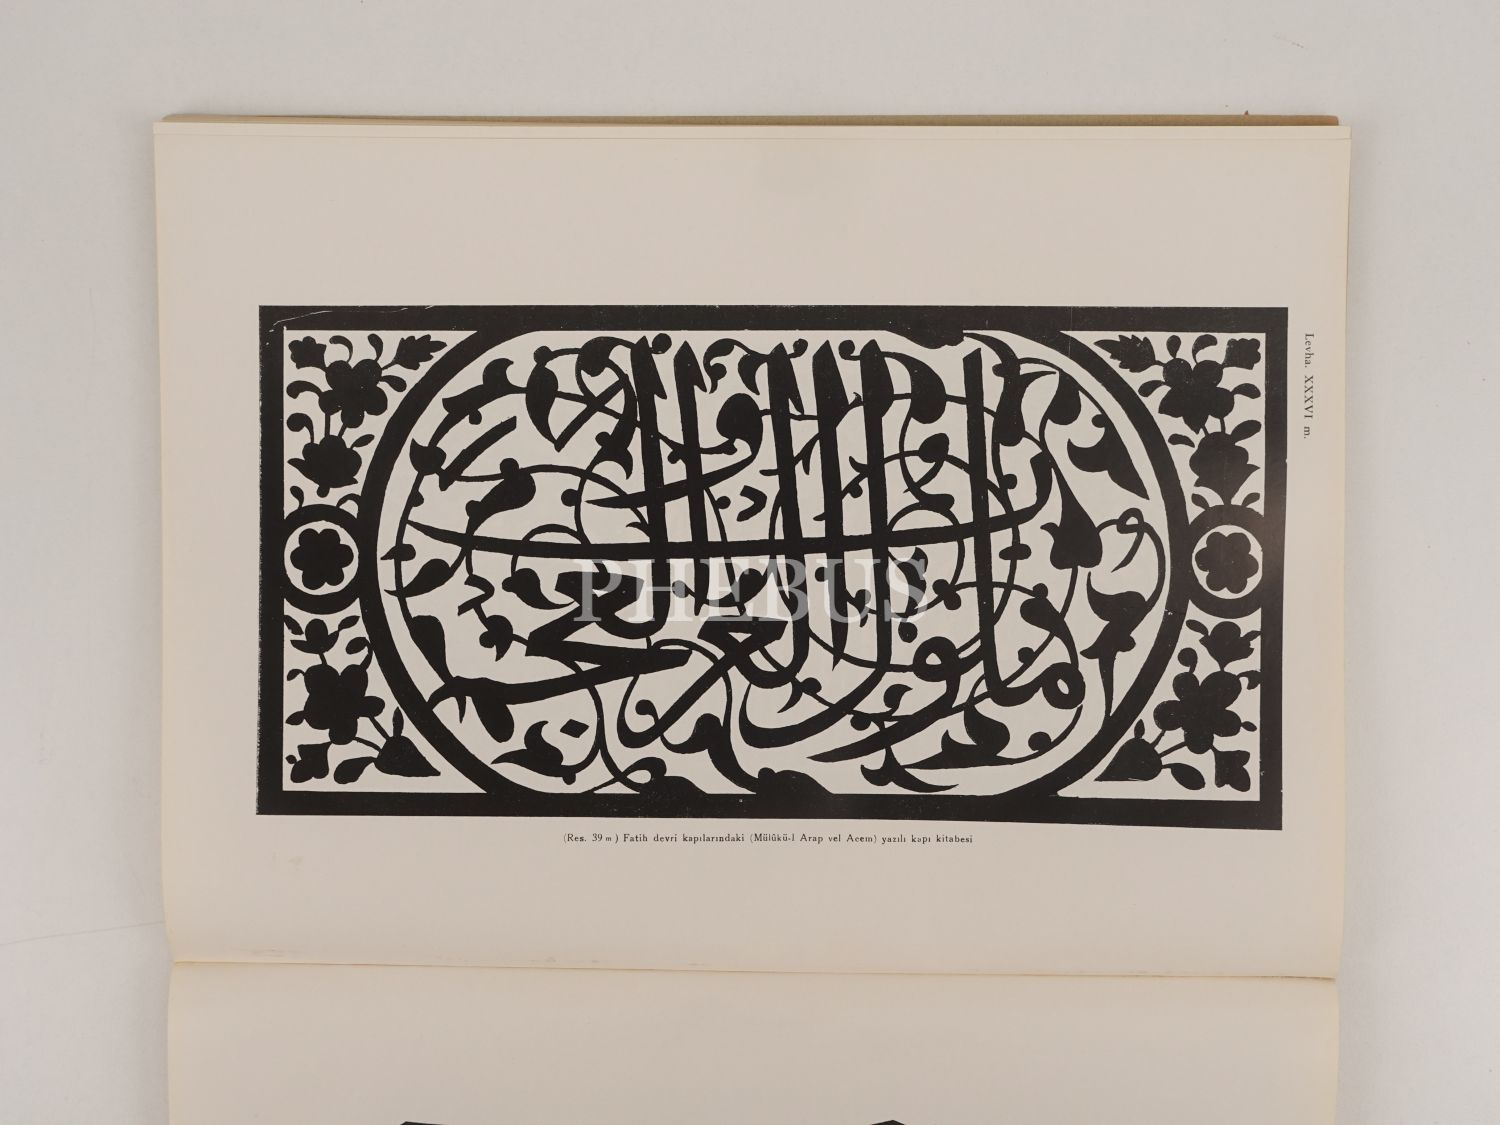 Levha. XXXVI m.
ملوك العرب والعجم
PHEBUS
(Res. 39 m ) Fatih devri kapılarındaki (Mülûkü-l Arap vel Acem) yazılı kapı kitabesi